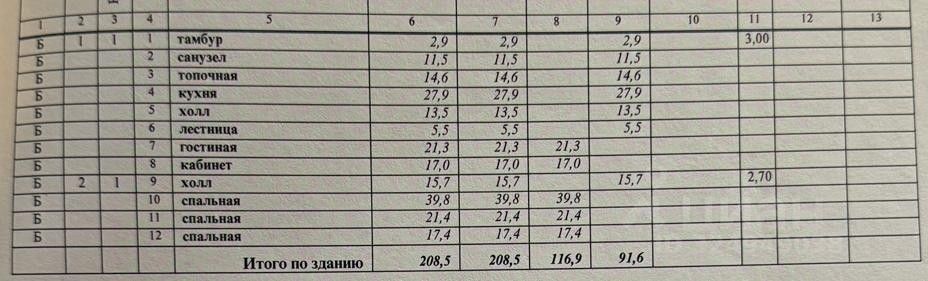 1 2 3 4 5 6 7 8 9 10 11 12 13
Б 1 1 1 тамбур 2,9 2,9 2,9 3,00
Б 2 санузел 11,5 11,5 11,5
Б 3 топочная 14,6 14,6 14,6
Б 4 кухня 27,9 27,9 27,9
Б 5 холл 13,5 13,5 13,5
Б 6 лестница 5,5 5,5 5,5
Б 7 гостиная 21,3 21,3 21,3
Б 8 кабинет 17,0 17,0 17,0
Б 2 1 9 холл 15,7 15,7 15,7 2,70
Б 10 спальная 39,8 39,8 39,8
Б 11 спальная 21,4 21,4 21,4
Б 12 спальная 17,4 17,4 17,4
Итого по зданию 208,5 208,5 116,9 91,6